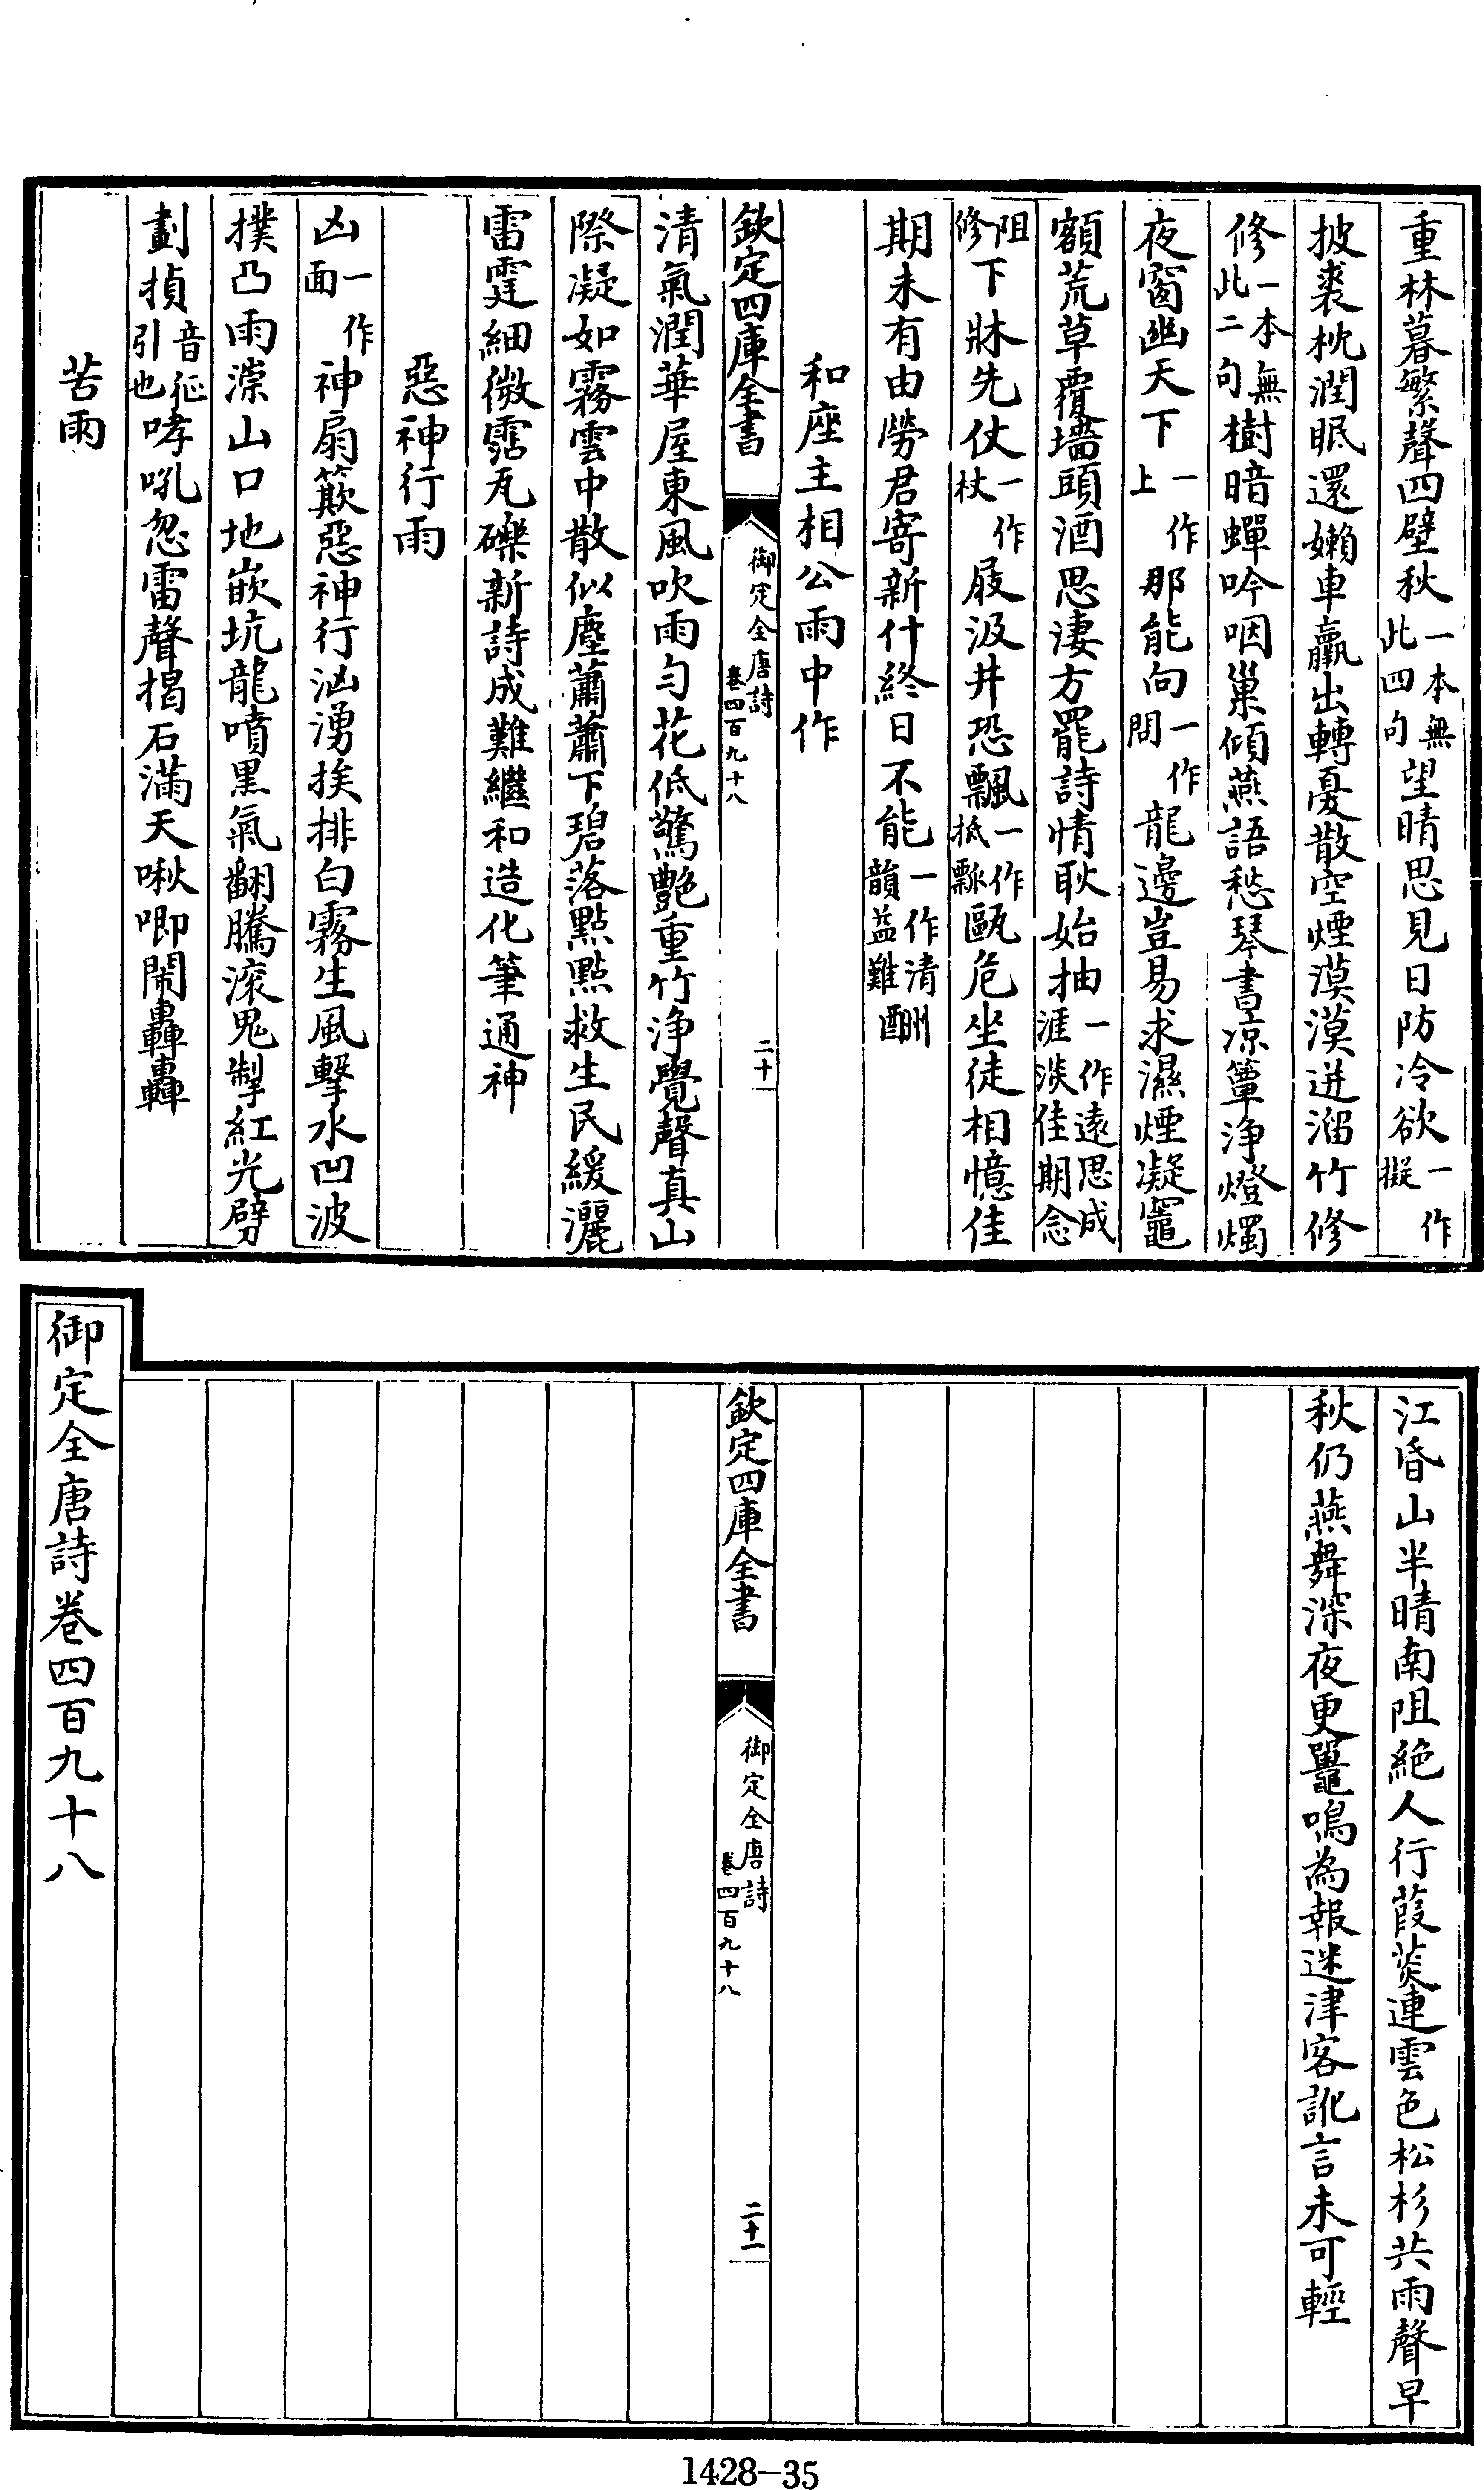 重林暮繁聲四壁秋一本無此四句望晴思見日防冷欲一作擬
披裘枕潤眠還嬾車羸出轉憂散空煙漠漠迸溜竹修
修一本無此二句樹暗蟬吟咽巢傾燕語愁琴書凉簟浄燈燭
夜窗幽天下一作上那能向一作問龍邊豈易求濕煙凝竈
額荒草覆墻頭酒思淒方罷詩情耿始抽一作遠思成涯淡佳期念
阻修下牀先仗一作杖屐汲井恐飄一作抵瓢甌危坐徒相憶佳
期未有由勞君寄新什終日不能一作清韻益難酬
和座主相公雨中作
欽定四庫全書
御定全唐詩
卷四百九十八
二十
清氣潤華屋東風吹雨勻花低驚艷重竹浄覺聲真山
際凝如霧雲中散似塵蕭蕭下碧落點點救生民緩灑
雷霆細微霑瓦礫新詩成難繼和造化筆通神
惡神行雨
凶一作面神扇簸惡神行洶湧挨排白霧生風擊水凹波
撲凸雨漴山口地嵌坑龍噴黒氣翻騰滚鬼掣紅光劈
劃揁音征引也哮吼忽雷聲揭石滿天啾唧鬧轟轟
苦雨
江昏山半晴南阻絶人行葭菼連雲色松杉共雨聲早
秋仍燕舞深夜更鼉鳴為報迷津客訛言未可輕
欽定四庫全書
御定全唐詩
卷四百九十八
二十一
御定全唐詩卷四百九十八
1428-35